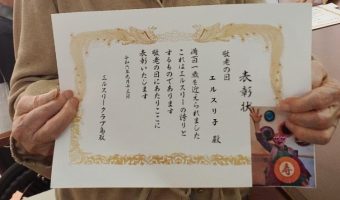 表彰状
敬老の日
エルスリ子 殿
満百一歳を迎えられました
これはエルスリーの誇りと
するものであります
敬老の日にあたりここに
表彰いたします
エルスリークラブ鳥取
寿